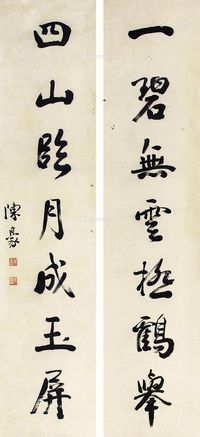 一碧無雲極鶴舉
四山臨月成玉屏
陳